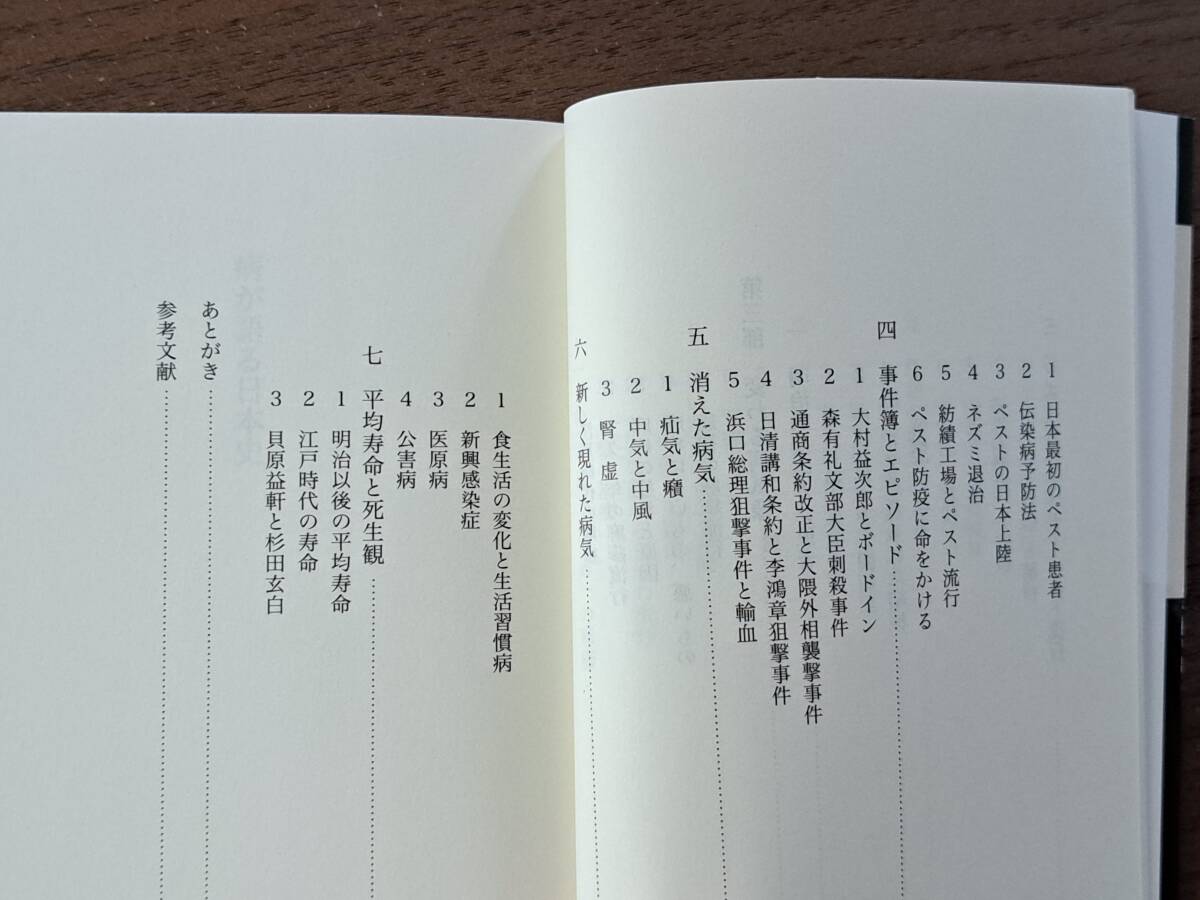 1 日本最初のペスト患者
2 伝染病予防法
3 ペストの日本上陸
4 ネズミ退治
5 紡績工場とペスト流行
6 ペスト防疫に命をかける
四 事件簿とエピソード
1 大村益次郎とボードイン
2 森有礼文部大臣刺殺事件
3 通商条約改正と大隈外相襲撃事件
4 日清講和条約と李鴻章狙撃事件
5 浜口総理狙撃事件と輸血
五 消えた病気
1 疝気と癪
2 中気と中風
3 腎虚
六 新しく現れた病気
1 食生活の変化と生活習慣病
2 新興感染症
3 医原病
4 公害病
七 平均寿命と死生観
1 明治以後の平均寿命
2 江戸時代の寿命
3 貝原益軒と杉田玄白
あとがき
参考文献
病が語る日本史